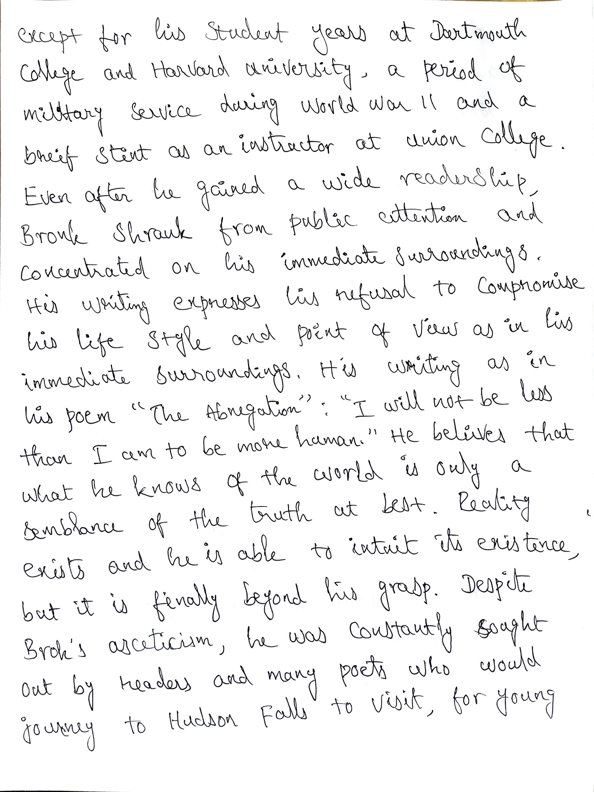 except for his Student years at Dartmouth
College and Harvard university, a period of
military Service during World War II and a
brief Stint as an instructor at union College.
Even after he gained a wide readership,
Bronk Shrank from public attention and
Concentrated on his immediate surroundings.
His writing expresses his refusal to Compromise
his life Style and point of view as in his
immediate surroundings. His writing as in
his poem "The Abnegation": "I will not be less
than I am to be more human." He believes that
what he knows of the world is only a
semblance of the truth at best. Reality
exists and he is able to intuit its existence,
but it is finally beyond his grasp. Despite
Brok's asceticism, he was Constantly Sought
out by readers and many poets who would
journey to Hudson Falls to visit, for young